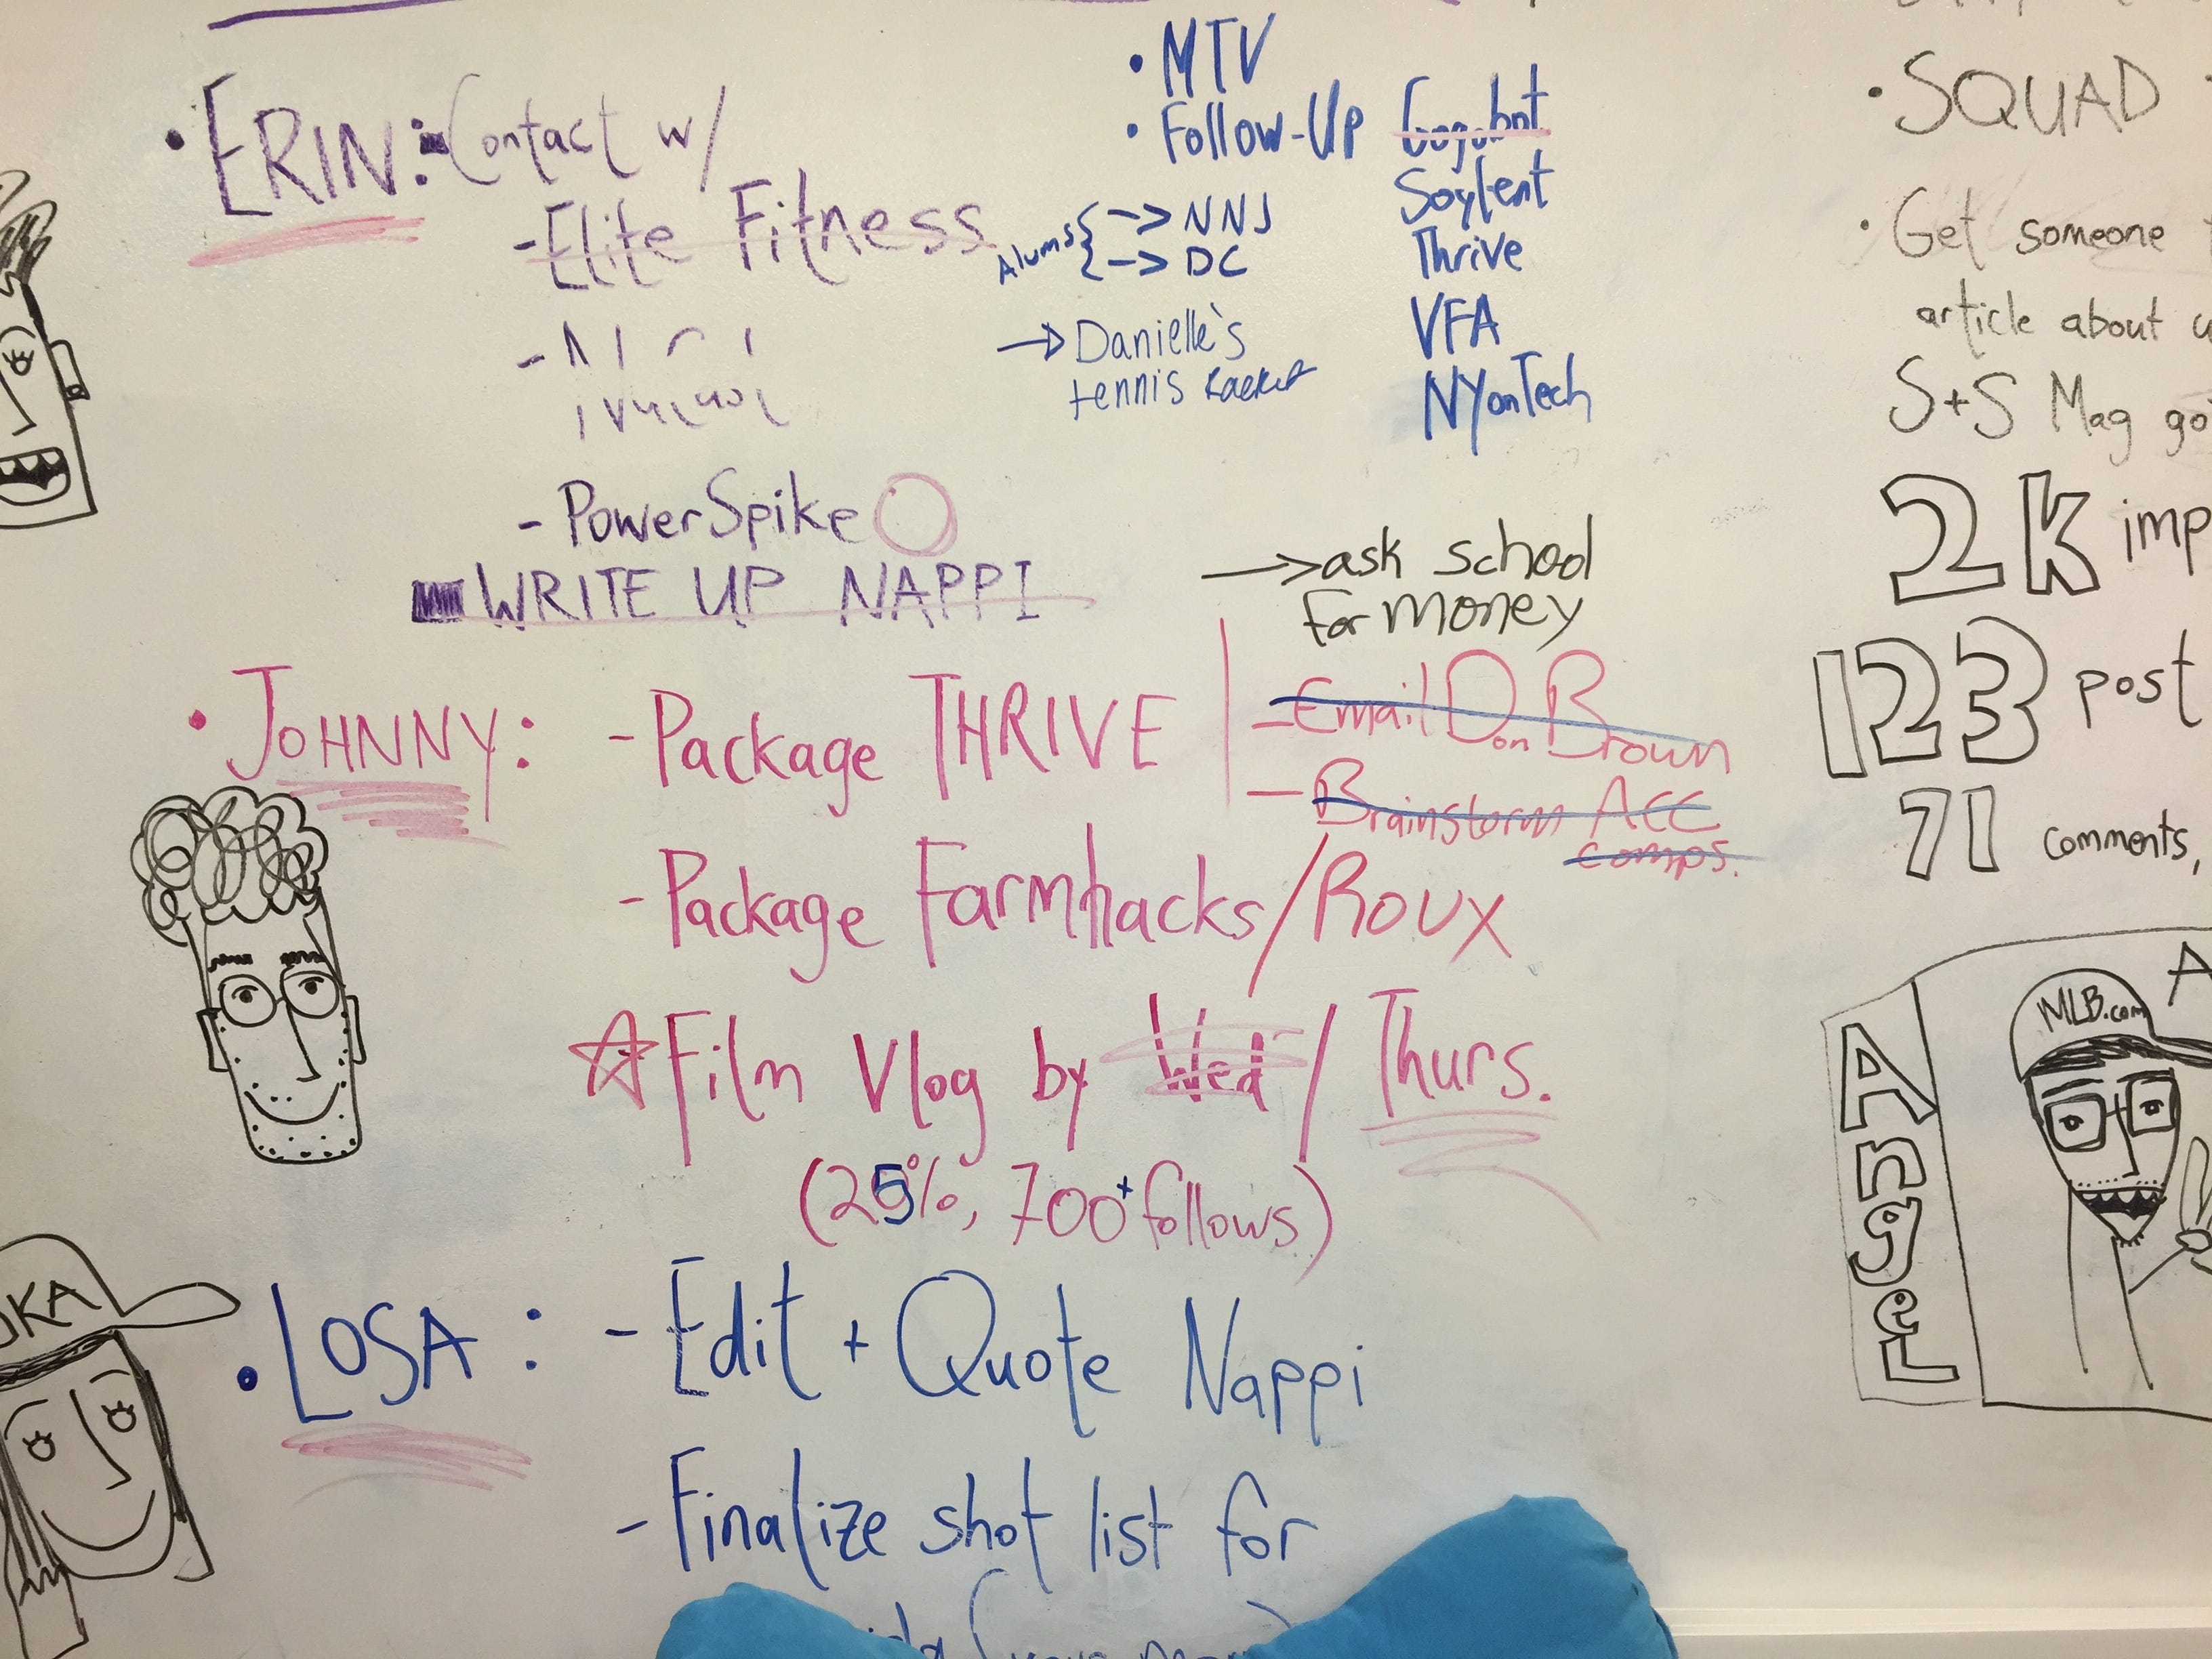 • ERIN: Contact w/
- Elite Fitness
- PowerSpike
WRITE UP NAPPI
• MTV
• Follow-Up Gogobot
Soylent
Thrive
VFA
NYonTech
Alums { -> NNJ
-> DC
-> Danielle's
tennis racket
-> ask school
for money
• JOHNNY: - Package THRIVE
- Email Don Brown
- Brainstorm ACC
comps.
- Package Farmhacks/Roux
☆ Film Vlog by Wed / Thurs.
(25%, 700+ follows)
• LOSA: - Edit + Quote Nappi
- Finalize shot list for
• SQUAD
• Get someone
article about
S+S Mag
2K imp
123 post
71 comments,
AngeL
MLB.com